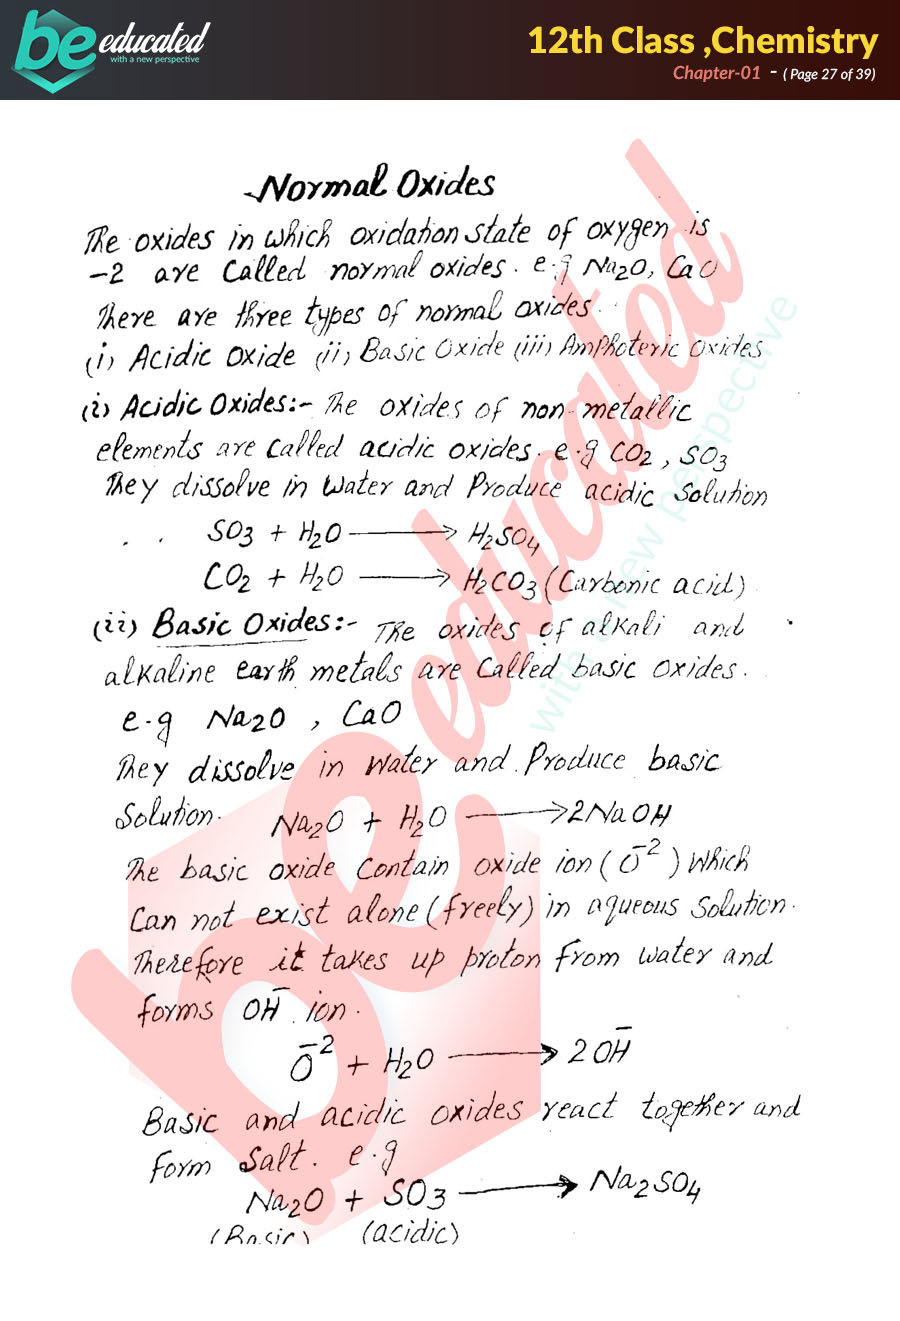 be educated
with a new perspective
12th Class ,Chemistry
Chapter-01 - ( Page 27 of 39)
Normal Oxides
The oxides in which oxidation state of oxygen is
-2 are Called normal oxides. e.g Na2O, CaO
There are three types of normal oxides.
(i) Acidic Oxide (ii) Basic Oxide (iii) Amphoteric Oxides
(i) Acidic Oxides:- The oxides of non-metallic
elements are called acidic oxides. e.g CO2, SO3
They dissolve in Water and Produce acidic Solution
SO3 + H2O ⟶ H2SO4
CO2 + H2O ⟶ H2CO3 (Carbonic acid)
(ii) Basic Oxides:- The oxides of alkali and
alkaline earth metals are Called basic oxides.
e.g Na2O , CaO
They dissolve in Water and Produce basic
Solution. Na2O + H2O ⟶ 2NaOH
The basic oxide Contain oxide ion (O⁻²) Which
Can not exist alone (freely) in aqueous Solution.
Therefore it takes up proton from water and
forms OH⁻ ion.
O⁻² + H2O ⟶ 2OH⁻
Basic and acidic oxides react together and
form Salt. e.g
Na2O + SO3 ⟶ Na2SO4
(Basic) (acidic)
be educated
with a new perspective